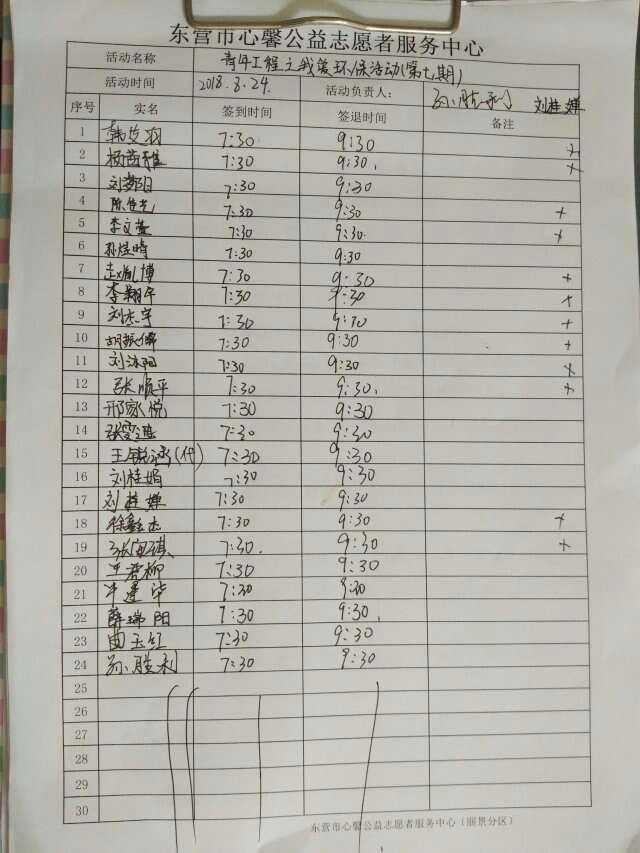 东营市心馨公益志愿者服务中心
活动名称 青年工程之我爱环保活动(第七期)
活动时间 2018.8.24. 活动负责人: 孙胜利 刘桂婵
序号 实名 签到时间 签退时间 备注
1 7:30 9:30 +
2 杨茜雅 7:30 9:30. +
3 刘梦阳 7:30 9:30
4 7:30 9:30 +
5 李文萱 7:30 9:30. +
6 孙煜晴 7:30 9:30
7 赵胤博 7:30 9:30 +
8 李翔宇 7:30 9:30 +
9 刘杰宇 7:30 9:30 +
10 胡振儒 7:30 9:30 +
11 刘沐阳 7:30 9:30 +
12 张顺平 7:30 9:30. +
13 邢家悦 7:30 9:30
14 7:30 9:30
15 (代) 7:30 9:30
16 刘桂娟 7:30 9:30
17 刘桂婵 7:30 9:30
18 徐鑫杰 7:30 9:30 +
19 7:30. 9:30 +
20 7:30 9:30
21 7:30 9:30
22 薛瑞阳 7:30 9:30.
23 曲玉红 7:30 9:30
24 孙胜利 7:30 9:30
25
26
27
28
29
30
东营市心馨公益志愿者服务中心（丽景分区）